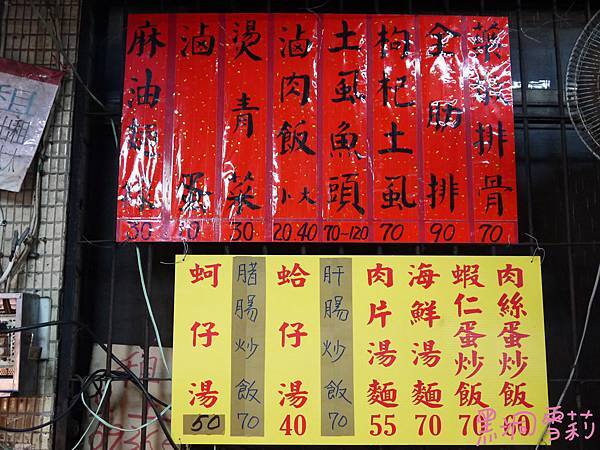 藥燉排骨 70
全肋排 90
枸杞土虱 70
土虱魚頭 70~120
滷肉飯 小 大 20.40
燙青菜 30
滷蛋 10
麻油麵線 30
肉絲蛋炒飯 60
蝦仁蛋炒飯 70
海鮮湯麵 70
肉片湯麵 55
肝腸炒飯 70
蛤仔湯 40
腊腸炒飯 70
蚵仔湯 50
租